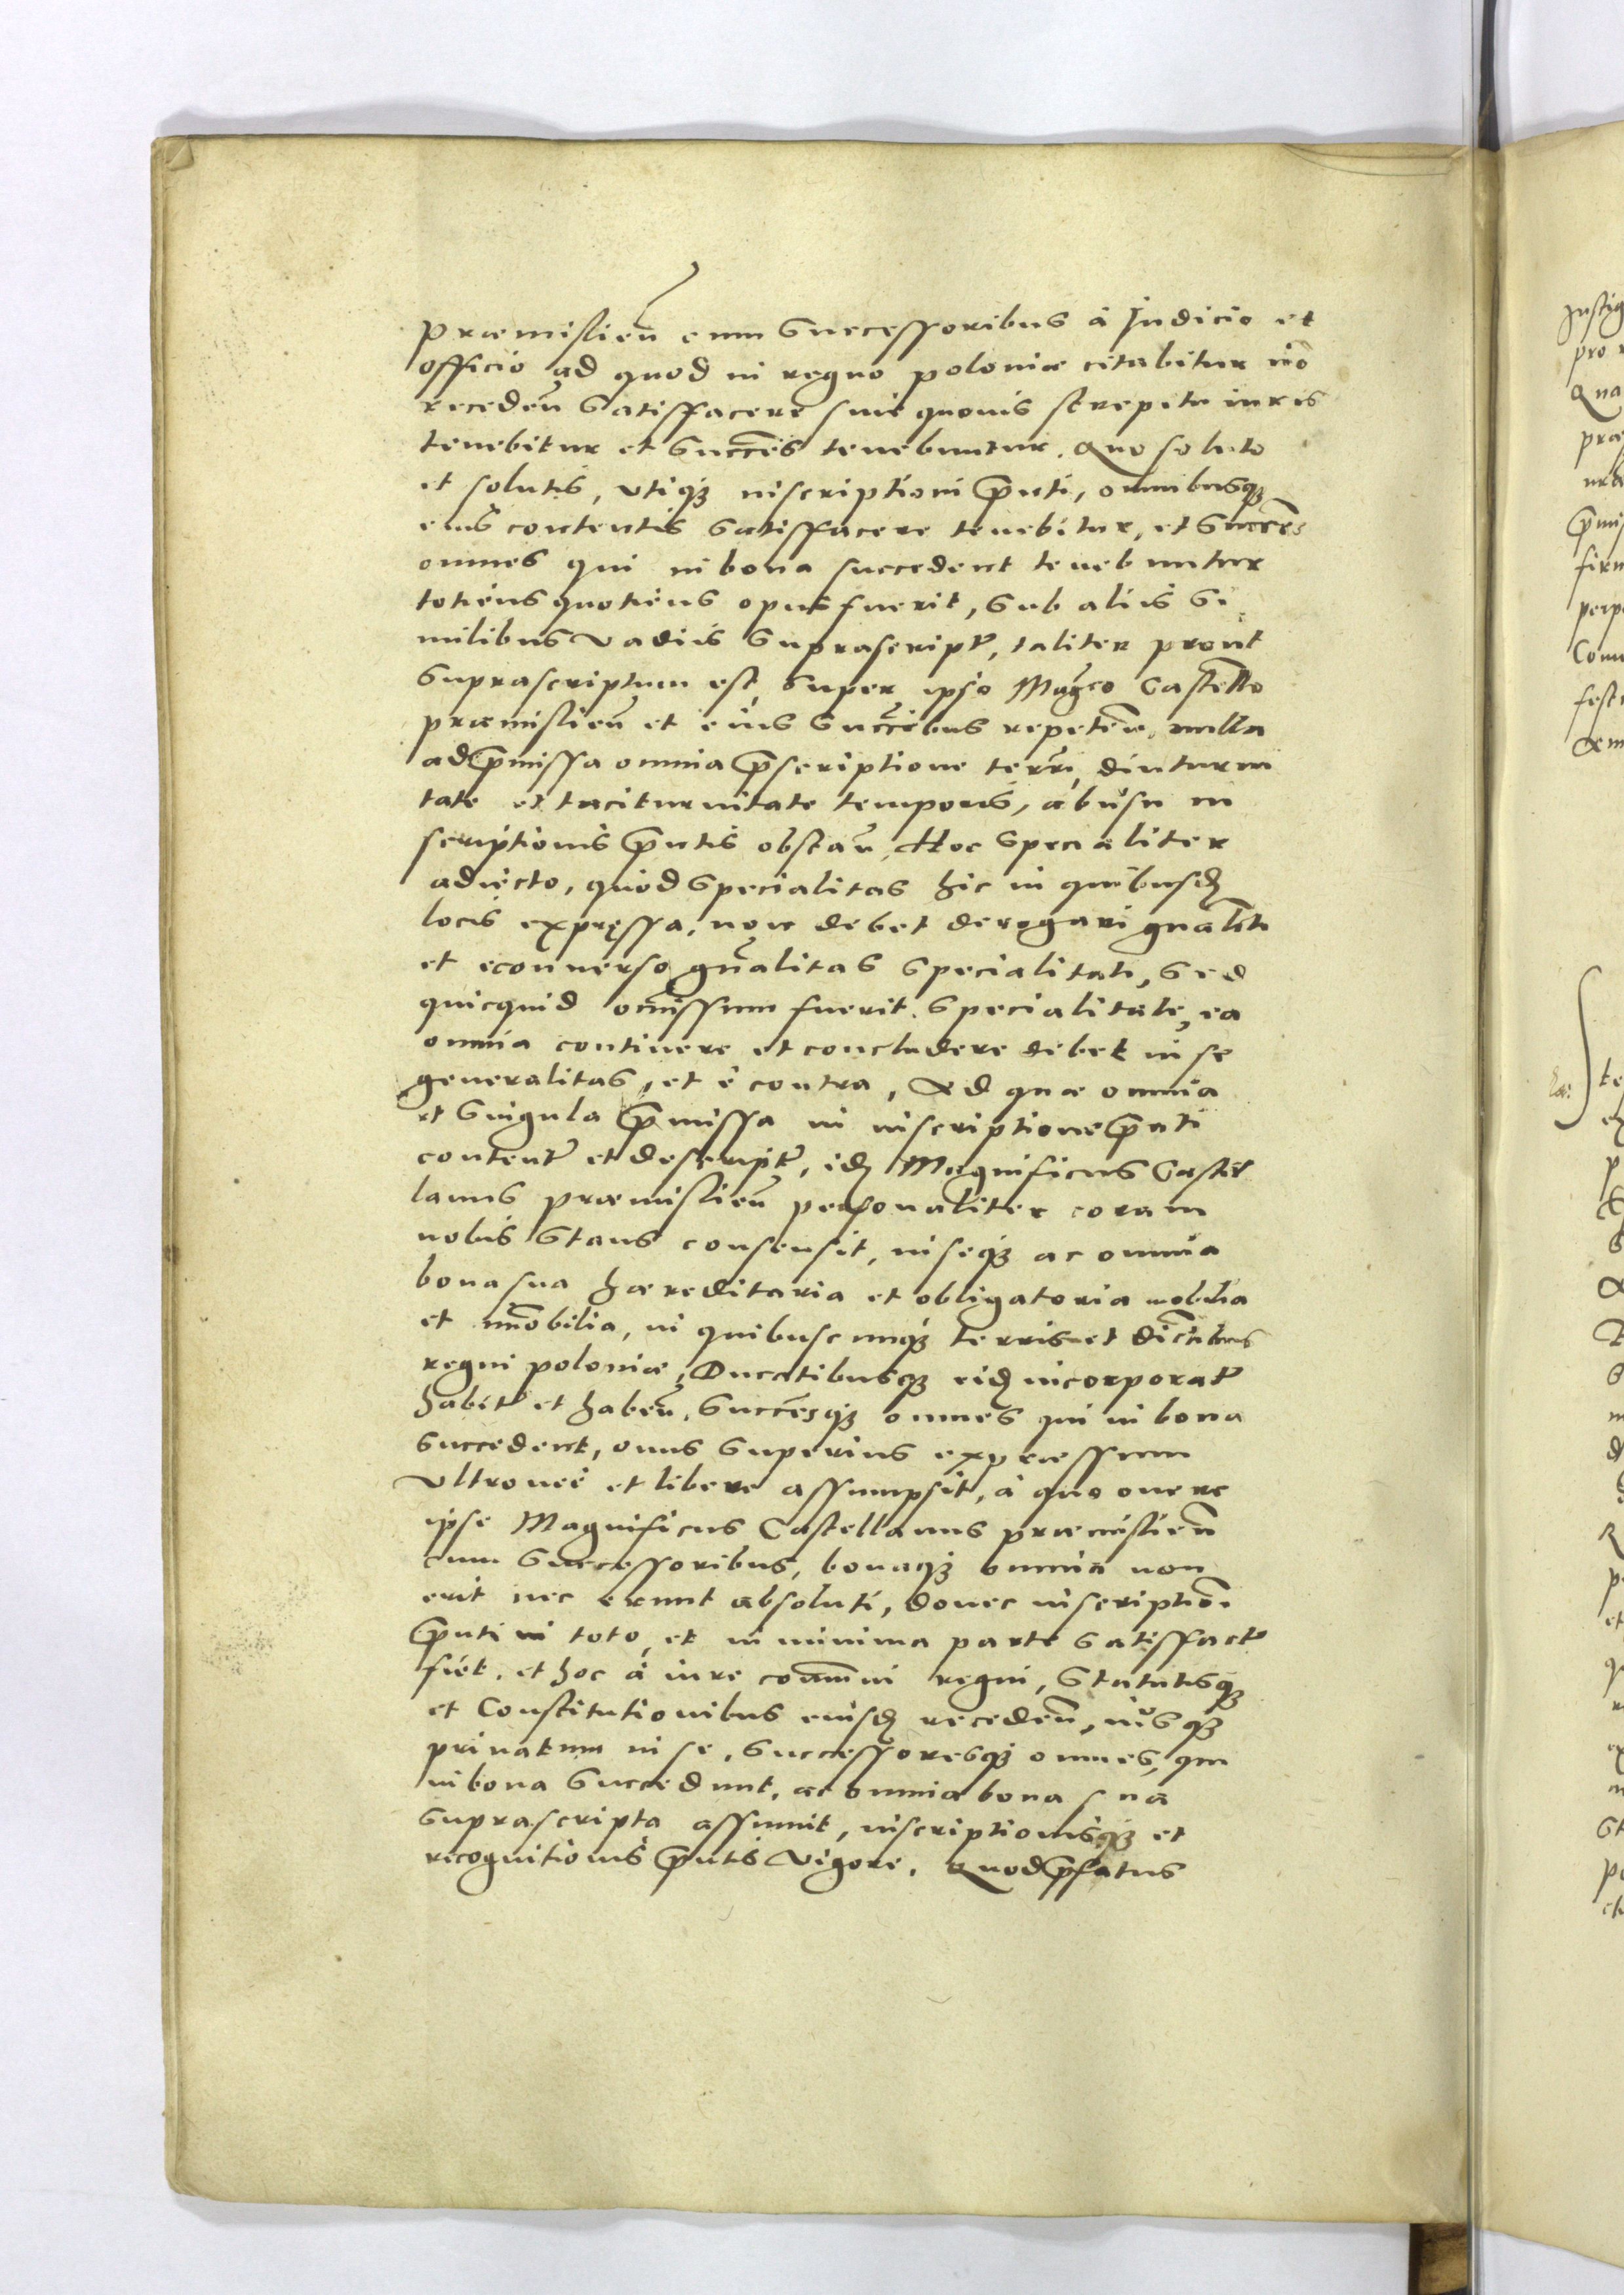 Præmislien̄ cum Successoribus à Judicio et
officio ad quod in regno poloniæ citabitur nō
receden̄ Satisfacere sine quouis strepitu iuris
tenebitur et Succ̄es tenebuntur. Quo soluto
et solutis, vtiqȝ inscriptioni p̄nti, omnibusqȝ
eius contentis satisfacere tenebitur, et Succ̄res
omnes qui in bona succedent tenebuntur
totiens quotiens opus fuerit, sub aliis Si
milibus vadiis Suprascript̄, taliter prout
Suprascriptum est, super ipso Maḡco Castello
præmislien̄ et eius Succ̄ibus repeten̄, nulla
ad p̄missa omnia p̄scriptione terr̄i, diuturni
tate et taciturnitate temporis, abusu in
scriptionis p̄ntis obstan̄, Hoc specialiter
adiecto, quod specialitas hic in quibusd̄
locis expręssa, non debet derogari gn̄aliti
et econuerso gn̄alitas specialitati, sed
quicquid omissum fuerit specialitate, ea
omnia continere et concludere debet in se
generalitas, et è contra, Ad quæ omnia
et Singula p̄missa in inscriptione p̄nti
content̄ et descript̄, id̄ Magnificus Castel
lanus præmislien̄ personaliter coram
nobis Stans consensit, in seqȝ ac omnia
bona sua hæreditaria et obligatoria mobilia
et im̄obilia, in quibuscunqȝ terris et dic̄tibus
regni poloniæ, Ducatibusqȝ eid̄ incorporat̄
habit̄ et haben̄, Succ̄esqȝ omnes qui in bona
succedent, onus superius expræssum
vltroneè et libere assumpsit, à quo onere
ipse Magnificus Castellanus præmislien̄
cum Successoribus, bonaqȝ omnia non
erit nec erunt absoluti, donec inscriptio͞i
p̄nti in toto, et in minima parte satisfact̄
fiet. et hoc à iure com̄uni regni, Statutisqȝ
et Constitutionibus eiusd̄ receden̄, iusqȝ
priuatum in se, Successoresqȝ omnes, qui
in bona Succedunt, ac omnia bona sua
suprascripta assumit, inscriptionisqȝ et
recognitionis p̄ntis vigore. Quod p̄fatus